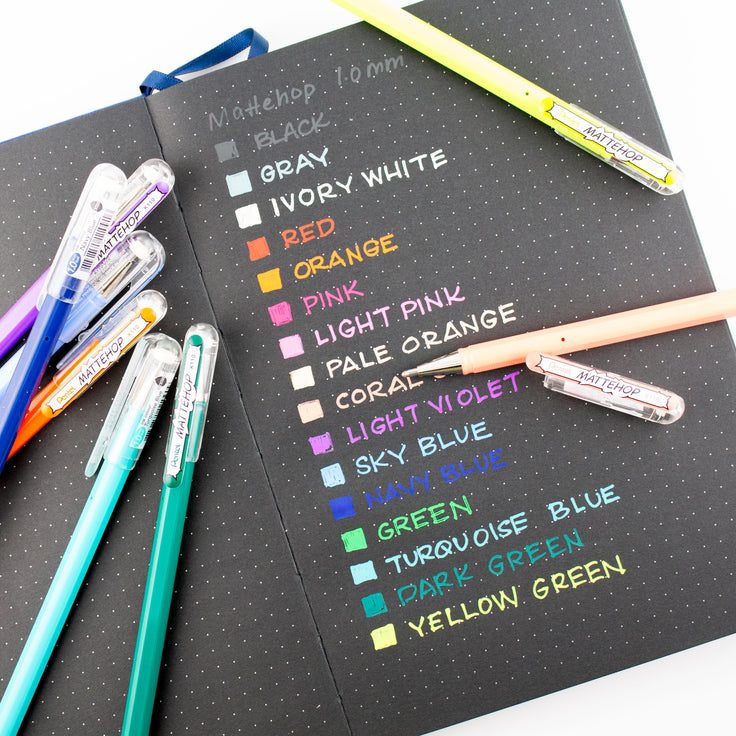 Mattehop 1.0mm
BLACK
GRAY
IVORY WHITE
RED
ORANGE
PINK
LIGHT PINK
PALE ORANGE
CORAL
LIGHT VIOLET
SKY BLUE
NAVY BLUE
GREEN
TURQUOISE BLUE
DARK GREEN
YELLOW GREEN
Pentel MATTEHOP
Pentel MATTEHOP
MATTEHOP K110
1.0 Navy Blue
MATTEHOP K110
Pentel MATTEHOP K110
Pentel MATTEHOP K110